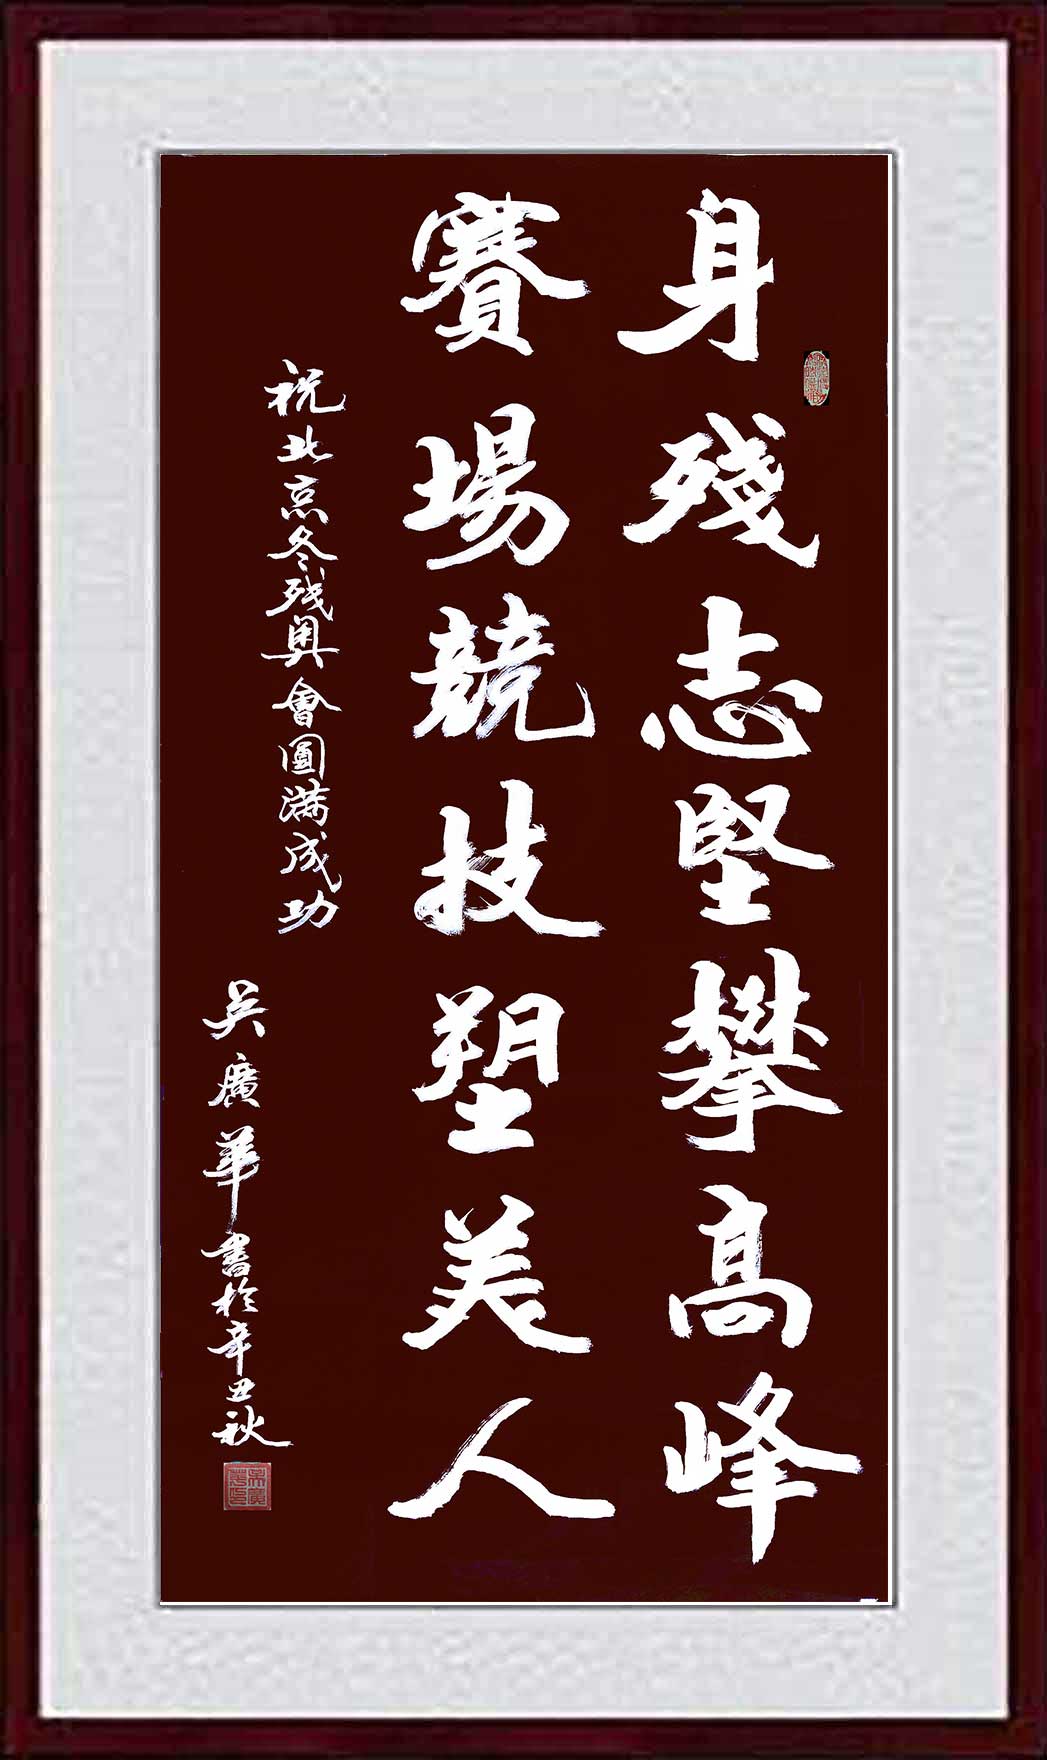 身殘志堅攀高峰
賽場競技塑美人
祝北京冬残奥會圓满成功
吳廣華書於辛丑秋